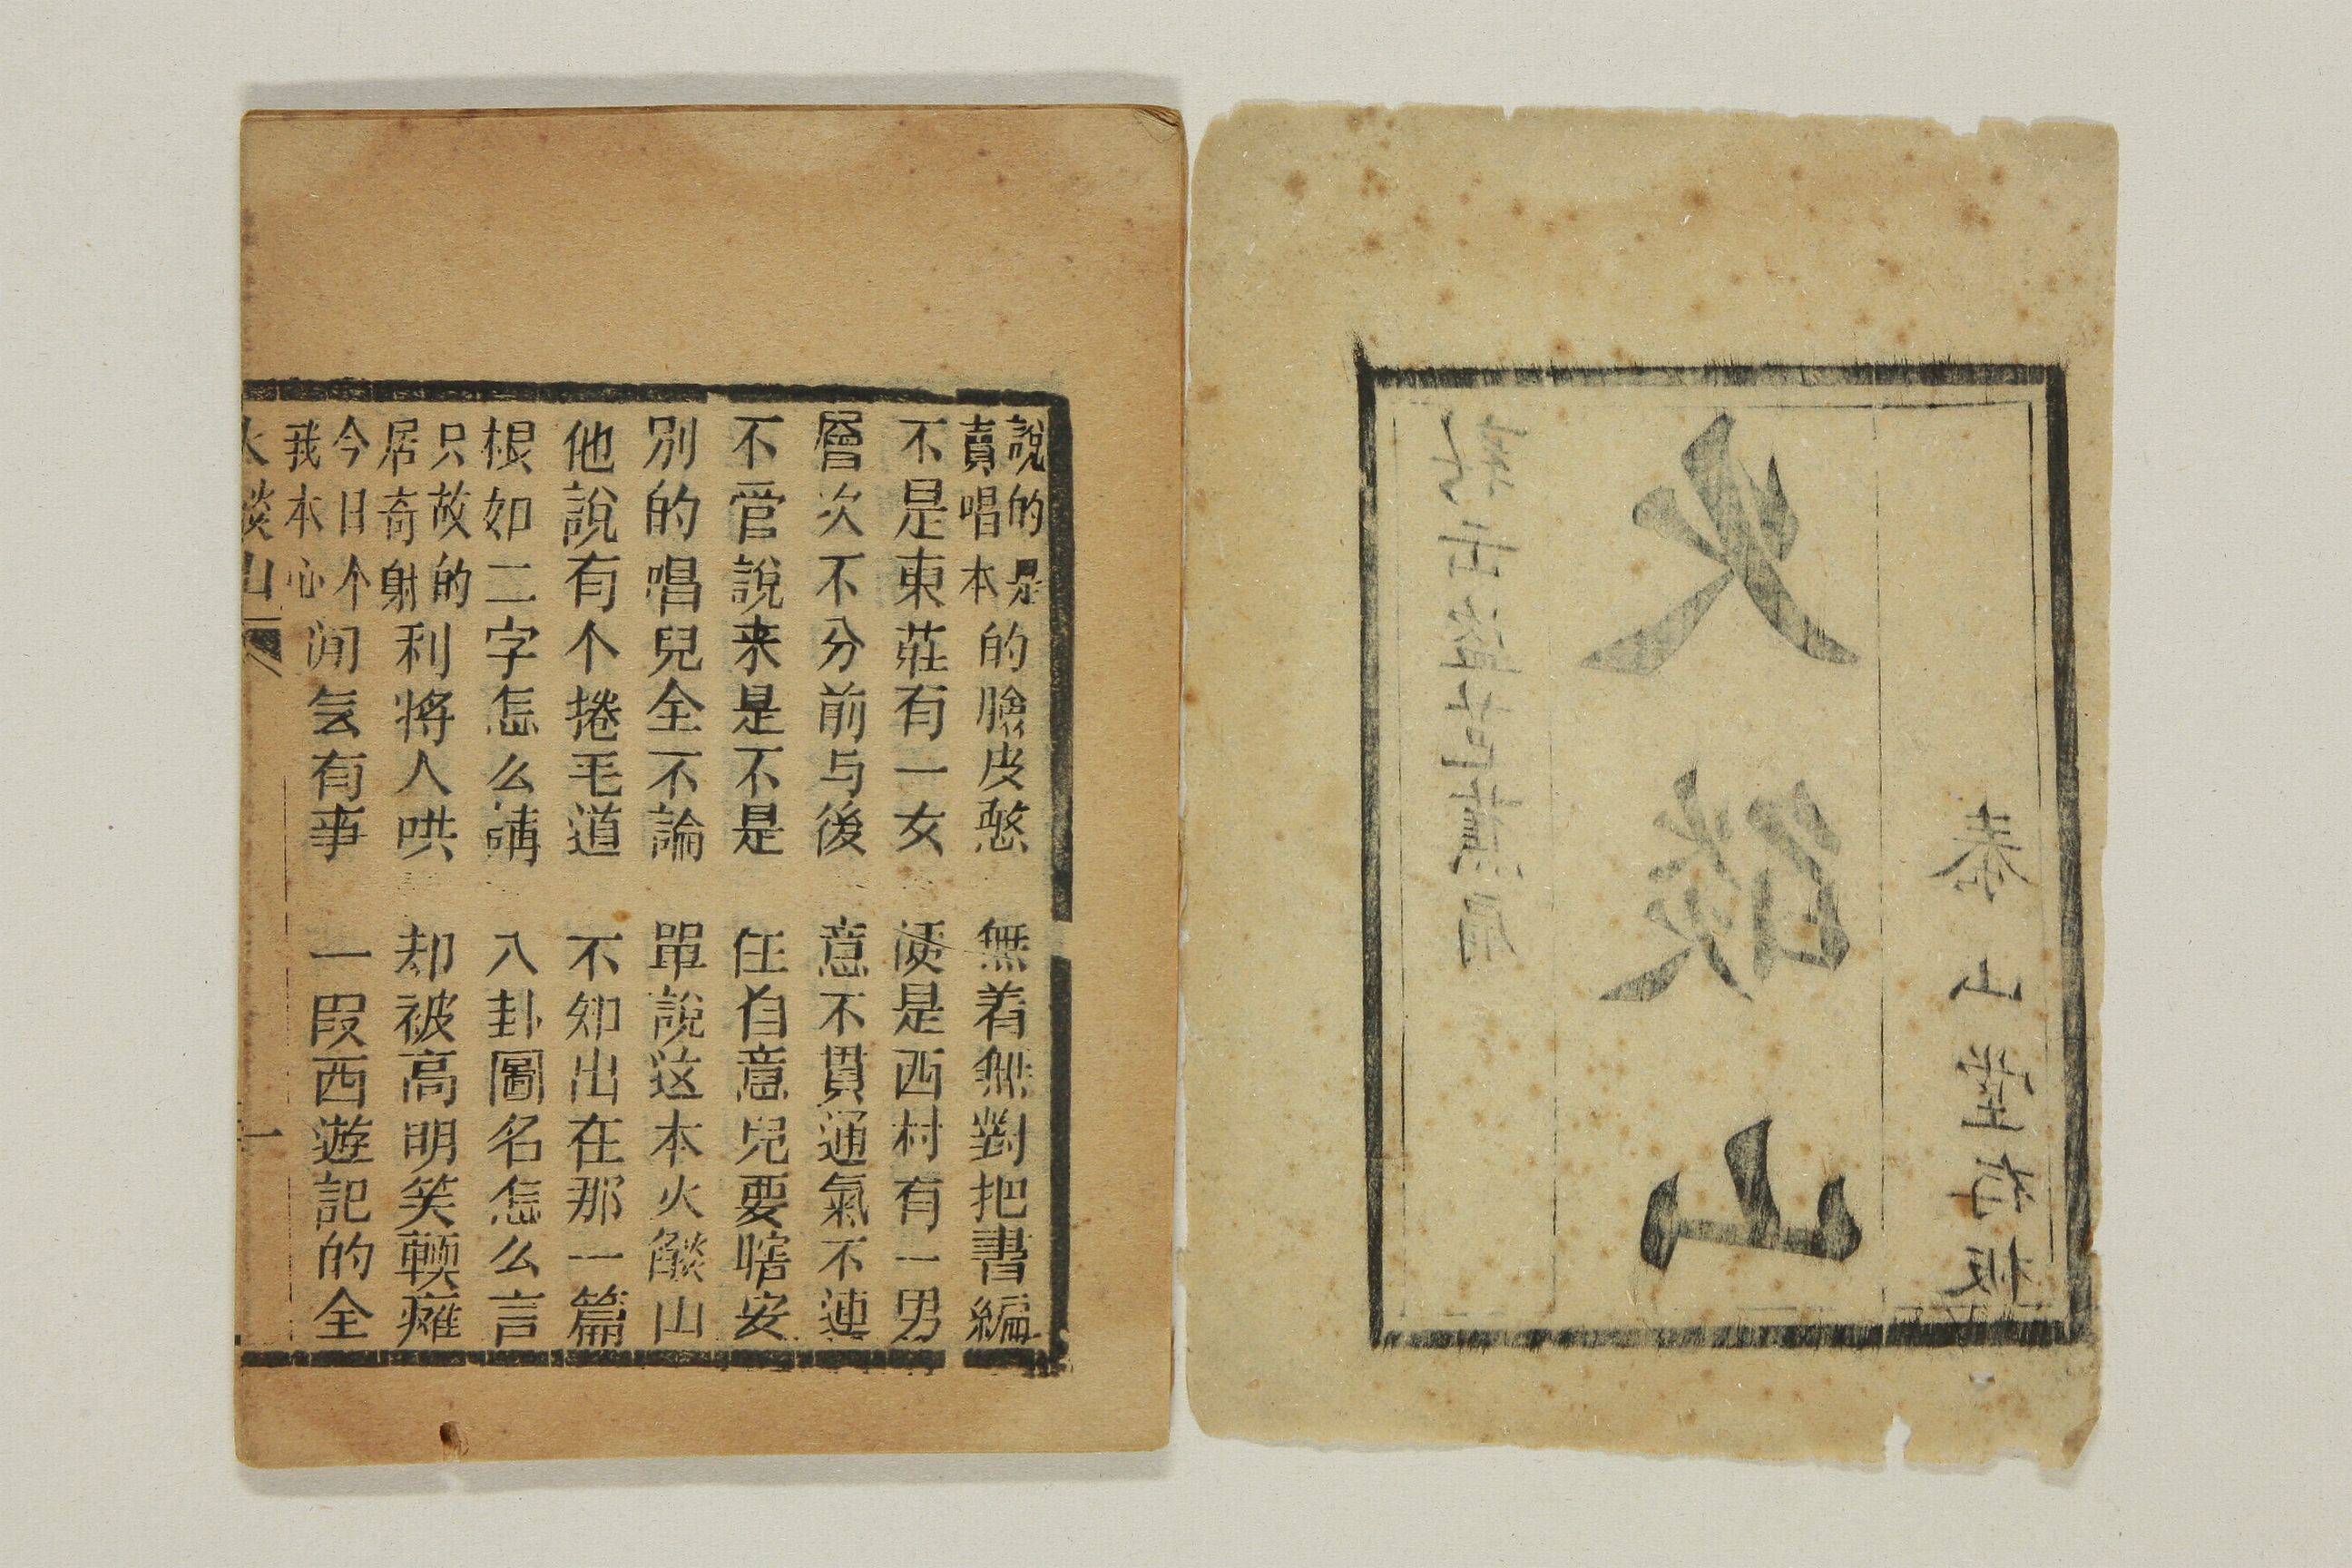 泰山堂存板
火燄山
盜芭蕉扇
說的是賣唱本的臉皮憨 無着無對把書編
不是東莊有一女 便是西村有一男
層次不分前与後 意不貫通氣不連
不管說来是不是 任自意兒要瞎安
別的唱兒全不論 單說这本火燄山
他說有个捲毛道 不知出在那一篇
根如二字怎么講 八卦圖名怎么言
只故的居奇射利將人哄 却被高明笑輭癱
今日个我本心有事 一叚西遊記的全
火燄山 一